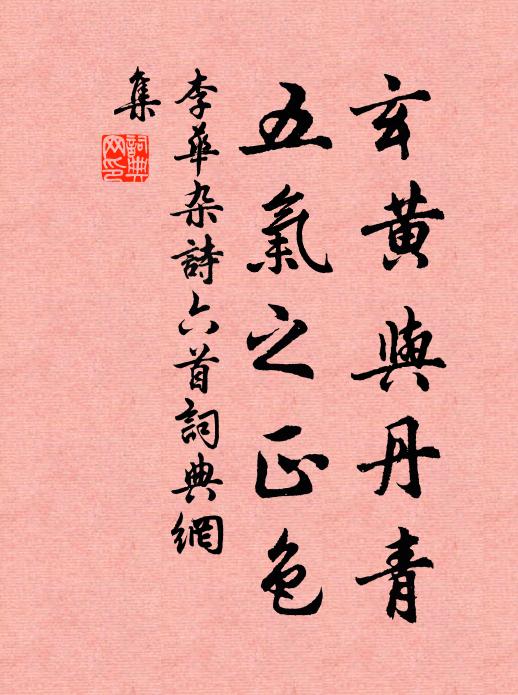 玄黃與丹青
五氣之正色
李華杂詩六首詞典網
集
詞典
网印